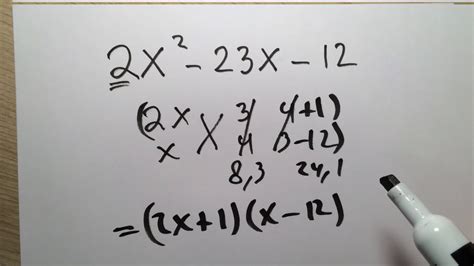 2x² - 23x - 12
(2x 3 4 +1)
x 4 3 -12)
8,3 24,1
= (2x+1)(x-12)